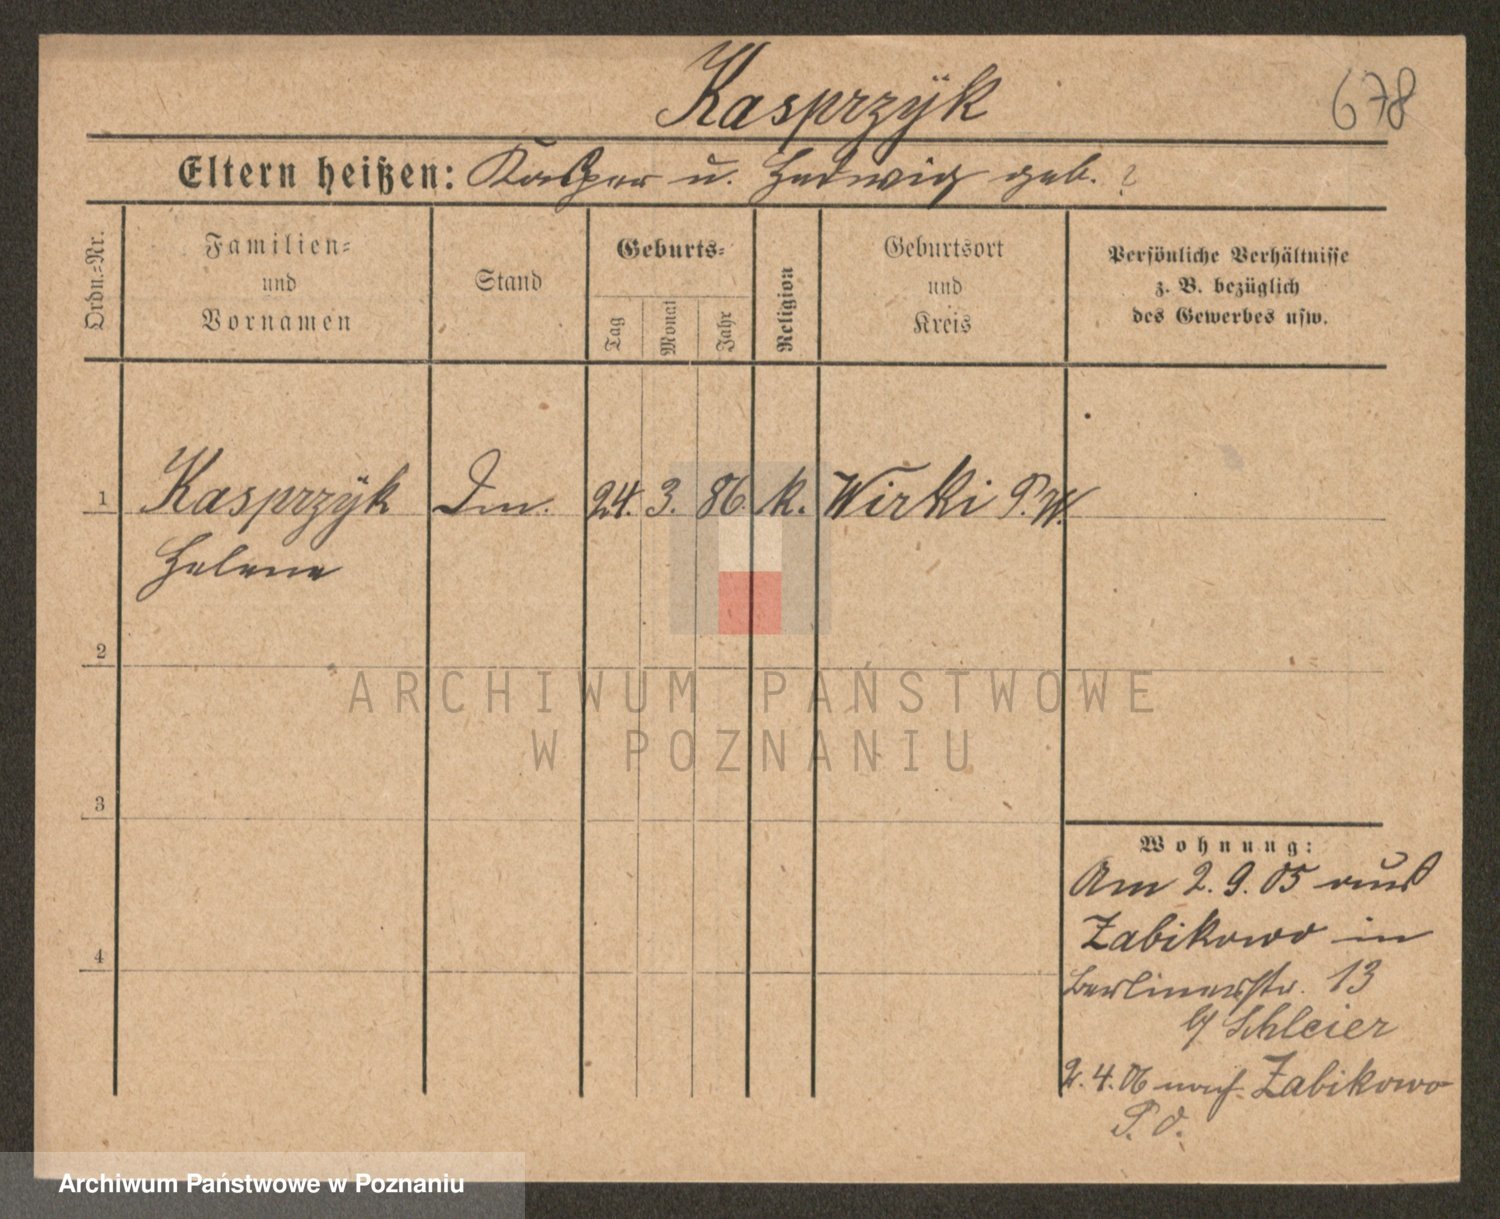 Kasprzÿk
678
Eltern heißen: Kasper u. Hedwig geb. ?
Ordn.-Nr.
Familien-
und
Vornamen
Stand
Geburts-
Tag
Monat
Jahr
Religion
Geburtsort
und
Kreis
Persönliche Verhältnisse
z. B. bezüglich
des Gewerbes usw.
1 Kasprzÿk Dm. 24. 3. 86. k. Wirki P. W.
Helene
2
3
4
ARCHIWUM PAŃSTWOWE
W POZNANIU
Wohnung:
Am 2. 9. 05 aus
Zabikowo in
Berlinerstr. 13
b/ Schleier
2. 4. 06 nach Zabikowo
P. O.
Archiwum Państwowe w Poznaniu